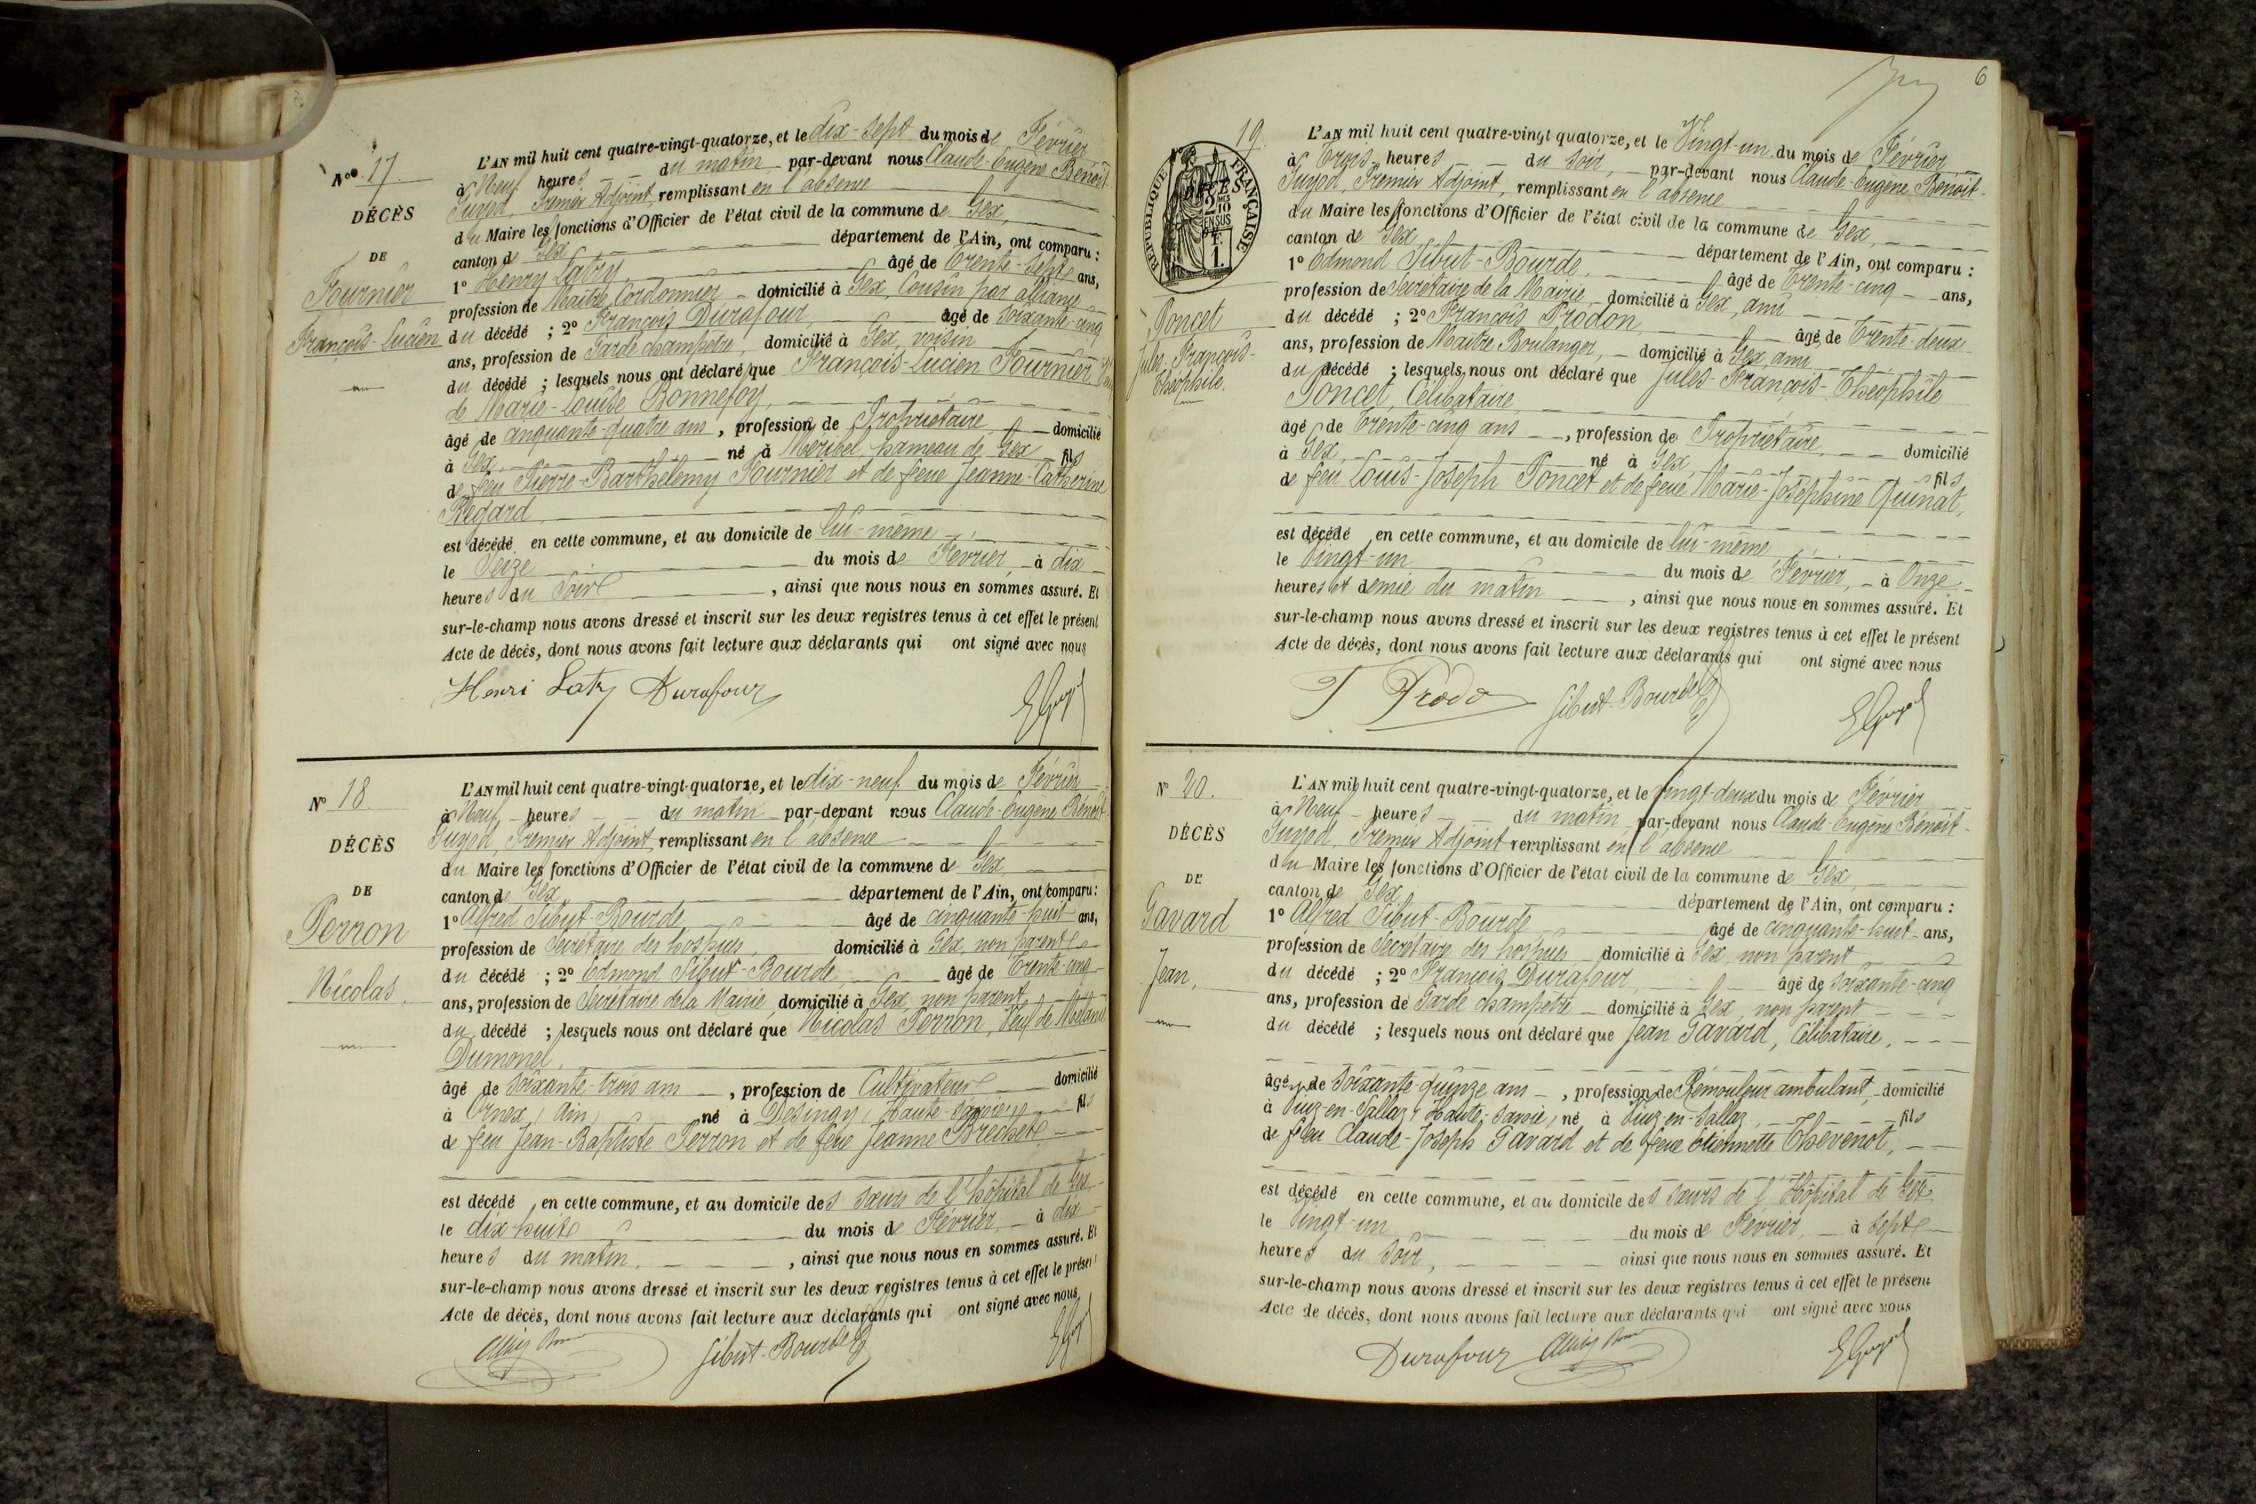 Nº 17.
DÉCÈS
DE
Fournier
François-Lucien
L'AN mil huit cent quatre-vingt-quatorze, et le dix-sept du mois de Février
à Neuf heures du matin par-devant nous Claude-Eugène Benoit-
Gujod, Premier Adjoint, remplissant en l'absence
du Maire les fonctions d'Officier de l'état civil de la commune de Gex,
canton de Gex département de l'Ain, ont comparu :
1º Henry Latry âgé de Trente-sept ans,
profession de Maître Cordonnier, domicilié à Gex, Cousin par alliance
du décédé ; 2º François Durafour, âgé de soixante-cinq
ans, profession de Garde champêtre, domicilié à Gex, voisin
du décédé ; lesquels nous ont déclaré que François-Lucien Fournier
de Marie-Louise Bonnefoy,
âgé de cinquante-quatre ans, profession de Propriétaire domicilié
à Gex, né à Meribel, hameau de Gex fils
de feu Pierre-Barthélemy Fournier et de feue Jeanne-Catherine
Regard
est décédé en cette commune, et au domicile de lui-même
le Seize du mois de Février, à dix
heures du Soir, ainsi que nous nous en sommes assuré. Et
sur-le-champ nous avons dressé et inscrit sur les deux registres tenus à cet effet le présent
Acte de décès, dont nous avons fait lecture aux déclarants qui ont signé avec nous
Henri Latry Durafour
Nº 18
DÉCÈS
DE
Perron
Nicolas.
L'AN mil huit cent quatre-vingt-quatorze, et le dix-neuf du mois de Février
à Neuf heures du matin par-devant nous Claude-Eugène Bénoit-
Gujod, Premier Adjoint, remplissant en l'absence
du Maire les fonctions d'Officier de l'état civil de la commune de Gex,
canton de Gex département de l'Ain, ont comparu :
1º Alfred Sibut-Bourde âgé de cinquante-huit ans,
profession de Secrétaire des hospices, domicilié à Gex, non parent
du décédé ; 2º Edmond Sibut-Bourde, âgé de Trente-cinq
ans, profession de Secrétaire de la Mairie, domicilié à Gex, non parent
du décédé ; lesquels nous ont déclaré que Nicolas Perron, Veuf de
Dumonel,
âgé de soixante-trois ans, profession de Cultivateur domicilié
à Ornex, (Ain) né à Desingy, (Haute-Savoie), fils
de feu Jean-Baptiste Perron et de feue Jeanne Brechet
est décédé en cette commune, et au domicile des sœurs de l'hôpital de Gex
le dix-huit du mois de Février, à dix
heures du matin, ainsi que nous nous en sommes assuré. Et
sur-le-champ nous avons dressé et inscrit sur les deux registres tenus à cet effet le présent
Acte de décès, dont nous avons fait lecture aux déclarants qui ont signé avec nous
Sibut-Bourde
6
19.
RÉPUBLIQUE FRANÇAISE
2 MES 10 EN SUS
1.
Poncet
Jules-François-
Théophile.
L'AN mil huit cent quatre-vingt quatorze, et le Vingt-un du mois de Février
à Trois heures du soir, par-devant nous Claude-Eugène Bénoit-
Gujod, Premier Adjoint, remplissant en l'absence
du Maire les fonctions d'Officier de l'état civil de la commune de Gex,
canton de Gex département de l'Ain, ont comparu :
1º Edmond Sibut-Bourde, âgé de Trente-cinq ans,
profession de Secrétaire de la Mairie domicilié à Gex, ami
du décédé ; 2º François Prodon âgé de Trente-deux
ans, profession de Maître Boulanger, domicilié à Gex, ami
du décédé ; lesquels nous ont déclaré que Jules-François-Théophile
Poncet, Célibataire,
âgé de Trente-cinq ans, profession de Propriétaire, domicilié
à Gex, né à Gex, fils
de feu Louis-Joseph Poncet et de feue Marie-Josephine Quinat,
est décédé en cette commune, et au domicile de lui-même
le Vingt-un du mois de Février, à Onze
heures et demie du matin, ainsi que nous nous en sommes assuré. Et
sur-le-champ nous avons dressé et inscrit sur les deux registres tenus à cet effet le présent
Acte de décès, dont nous avons fait lecture aux déclarants qui ont signé avec nous
Sibut-Bourde
Nº 20.
DÉCÈS
DE
Gavard
Jean,
L'AN mil huit cent quatre-vingt-quatorze, et le Vingt-deux du mois de Février
à Neuf heures du matin, par-devant nous Claude-Eugène Bénoit-
Gujod, Premier Adjoint remplissant en l'absence
du Maire les fonctions d'Officier de l'état civil de la commune de Gex,
canton de Gex département de l'Ain, ont comparu :
1º Alfred Sibut-Bourde âgé de cinquante-huit ans,
profession de Secrétaire des hospices domicilié à Gex, non parent
du décédé ; 2º François Durafour, âgé de soixante-cinq
ans, profession de Garde champêtre domicilié à Gex, non parent
du décédé ; lesquels nous ont déclaré que Jean Gavard, Célibataire,
âgé de soixante-quinze ans, profession de Rémouleur ambulant, domicilié
à Viuz-en-Sallaz, (Haute-Savoie), né à Viuz-en-Sallaz, fils
de feu Claude-Joseph Gavard et de feue Etiennette Thevenot,
est décédé en cette commune, et au domicile des sœurs de l'Hôpital de Gex
le Vingt-un du mois de Février, à sept
heures du soir, ainsi que nous nous en sommes assuré. Et
sur-le-champ nous avons dressé et inscrit sur les deux registres tenus à cet effet le présent
Acte de décès, dont nous avons fait lecture aux déclarants qui ont signé avec nous
Durafour